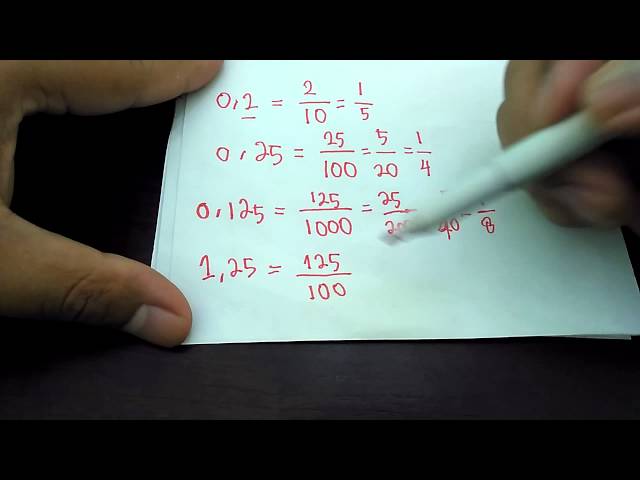 0,2 = 2/10 = 1/5
0,25 = 25/100 = 5/20 = 1/4
0,125 = 125/1000 = 25/ /40 = /8
1,25 = 125/100